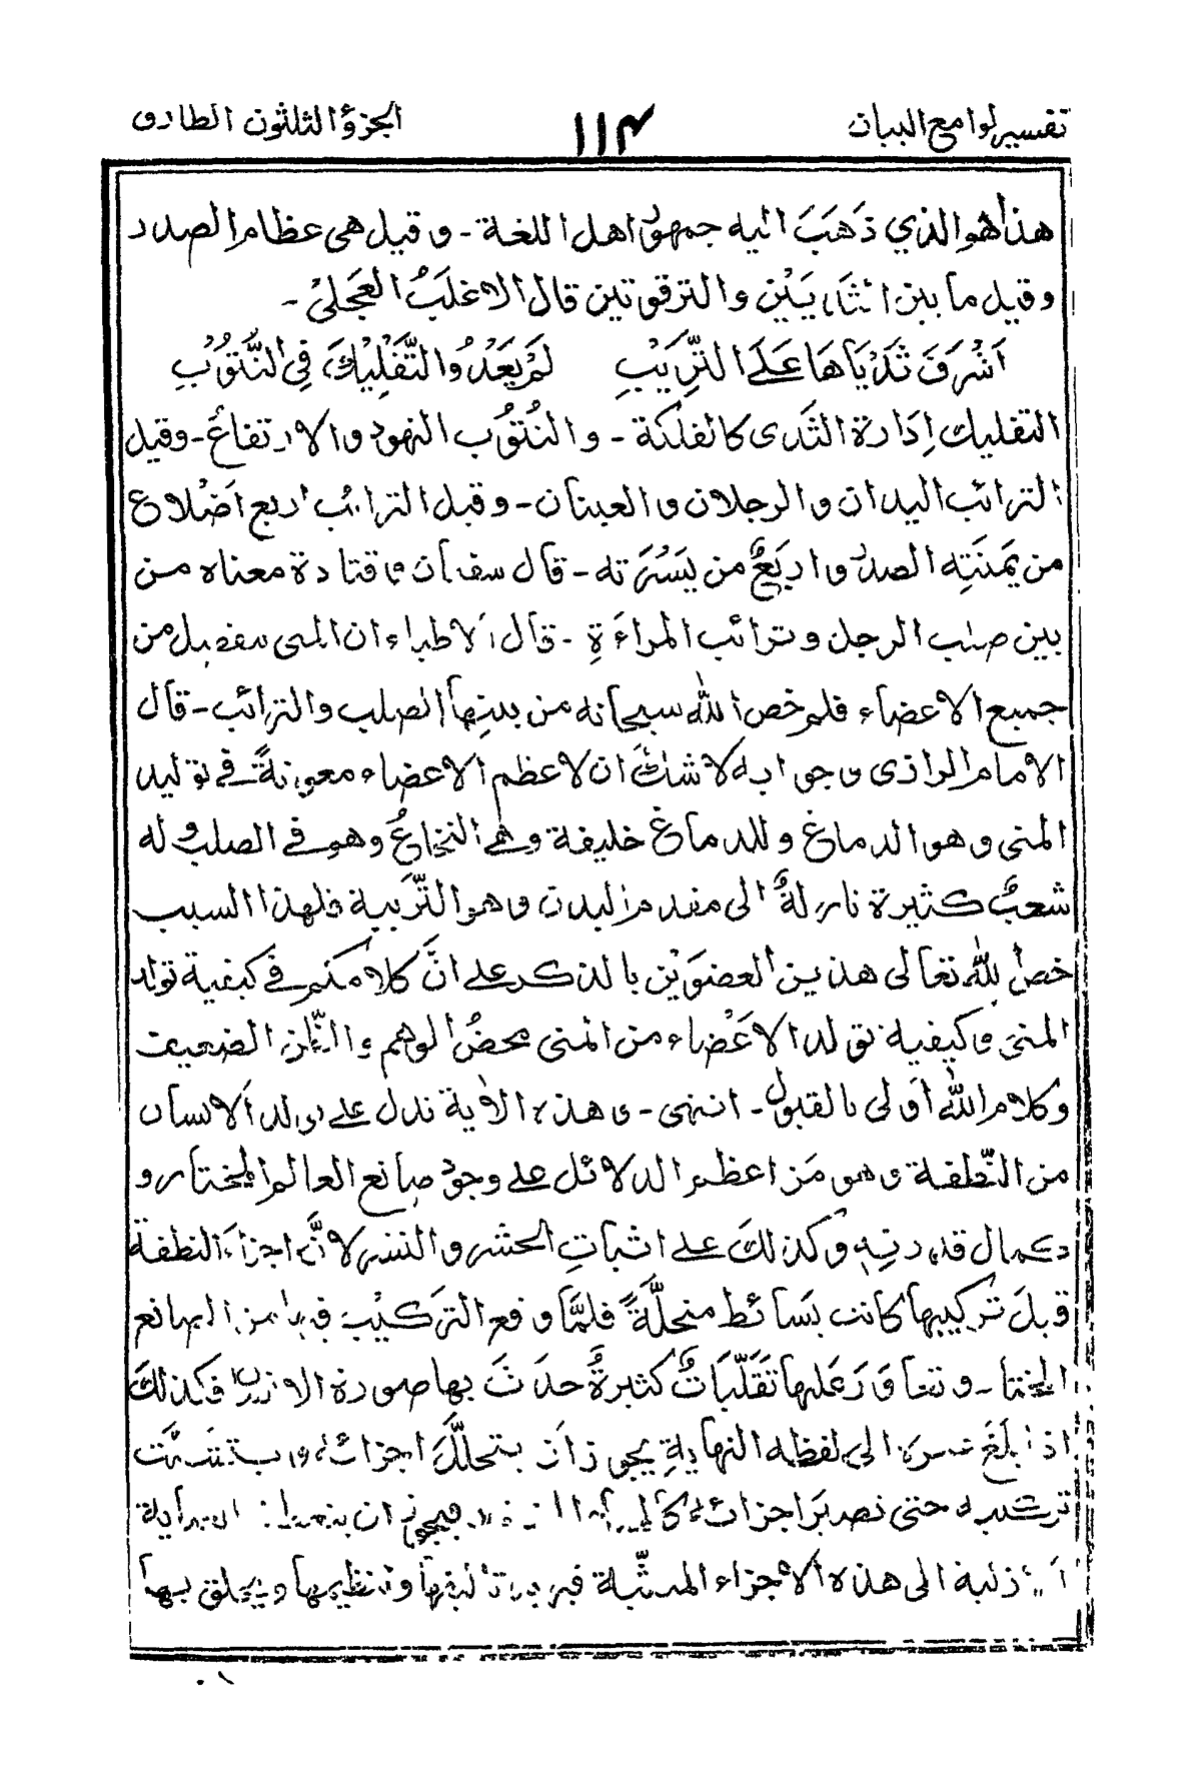 تفسير لوامع البيان ١١٤ الجزؤ الثلثون الطارق
هذا هو الذي ذَهَبَ اليه جمهور اهل اللغة - وقيل هى عظام الصدر
وقيل ما بين الثديَيْن والترقوتين قال الاغلبُ العجلىْ -
اَشْرَفَ ثَدْيَاهَا عَلَے التَّرِيْبِ لَمْ يَعْدُ والتَّفْلِيْكَ فِي النُّتُوْبِ
التفليك اِدَارة الثَدى كالفلكة - والنُتُوب النهود والارتفاعُ - وقيل
الترائب اليدان والرجلان والعينان - وقيل الترائبُ اربع اَضْلاع
من يَمنَتِه الصدر واربَعٌ من يَسْرَته - قال سفيان وقتادة معناه من
بين صلب الرجل وترائب المراءَةِ - قال الاطباء ان المنى ينفصل من
جميع الاعضاء فلم خص الله سبحانه من بينها الصلب والترائب - قال
الامام الرازى وجوابه لا شكَّ ان لاعظم الاعضاء معونةً فے توليد
المنى وهو الدماغ وللدماغ خليفة وهے النخاعُ وهو فے الصلب وله
شعبٌ كثيرة نازلةٌ الى مقدم البدن وهو التَّرِيبة فلهذا السبب
خص الله تعالى هذين العضوَيْن بالذكر على انَّ كلامكم فے كيفية تولد
المنى وكيفية تولد الاعْضاء من المنى محضُ الوهم والظّن الضعيف
وكلام الله اَولى بالقبول - انتهى - وهذه الاٰية تدل على تولد الانسان
من النّطفة وهو مَن اعظم الدلائل على وجود صانع العالم المختار و
كمال قدرتِه وكذلكَ على اثباتِ الحشر والنشر لانَّ اجزاءَ النطفة
قبلَ تركيبها كانت بَسَائط منحلَّةً فلمَّا وقع التركيْب فيها من الصانع
المختار - وتعاوَرَ علىها تَقَلّبَاتٌ كثيرةٌ حدَثَ بها صورة الانسان فكذلك
اذا بلَغَ عمره الى لفظه النهايةِ يجوز اَن يتحلَّلَ اجزائه ويتشتَّت
تركيبه حتى تصيرَ اجزائه فيجوز ان
الى هذه الاجزاء تاليفها وتنظيمها ويخلق بها